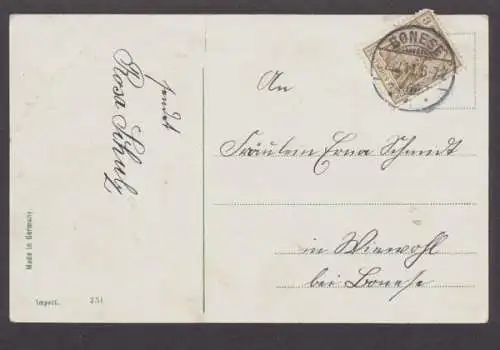 sendet
Rosa Schulz
Made in Germany
Import. 251
BONESE
An
Fräulein Erna Schmidt
in Wiewohl
bei Bonese